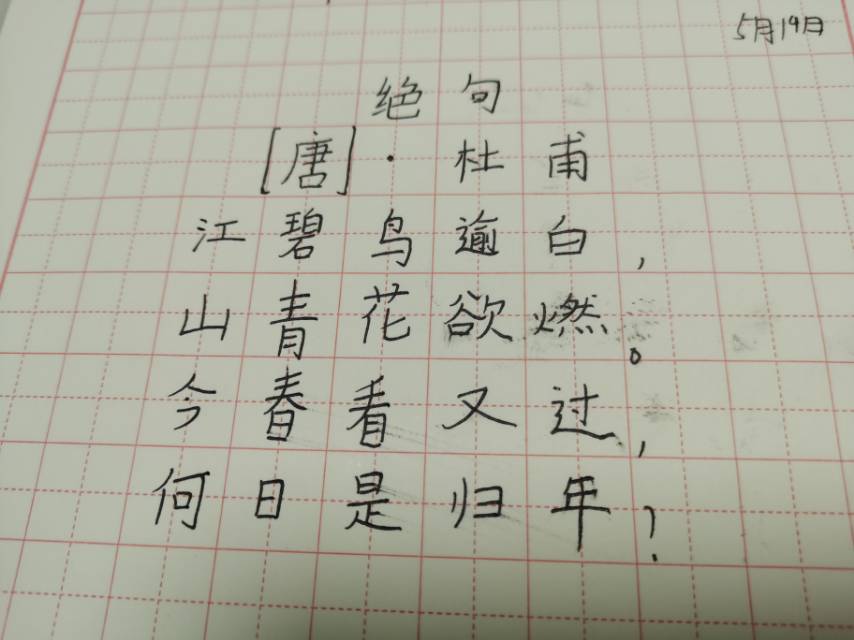 5月19日
绝句
[唐]·杜甫
江碧鸟逾白,
山青花欲燃。
今春看又过,
何日是归年?